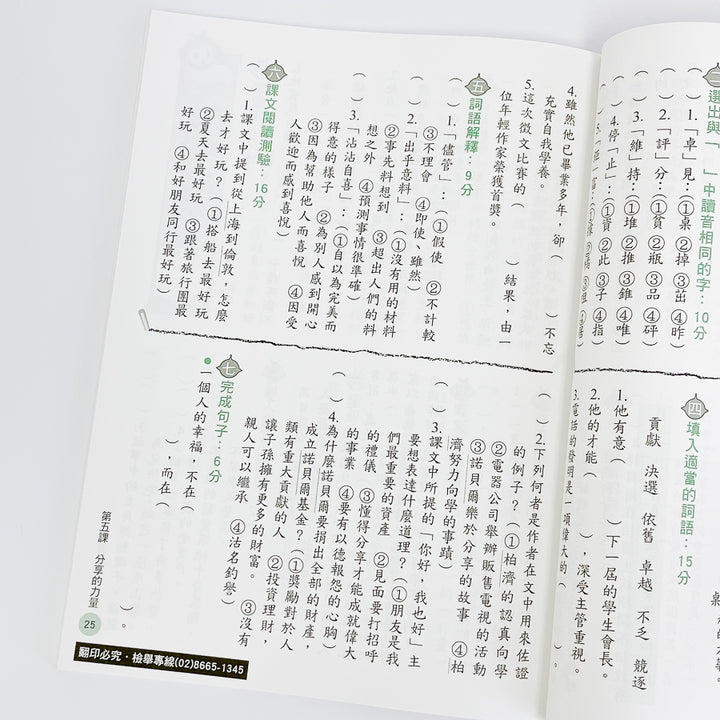 選出與「　」中讀音相同的字：10分
（　）1.「卓」見：（①桌 ②掉 ③茁 ④昨）
（　）2.「評」分：（①貧 ②瓶 ③品 ④砰）
（　）3.「維」持：（①堆 ②推 ③錐 ④唯）
（　）4.停「止」：（①貢 ②此 ③子 ④指）
四 填入適當的詞語：15分
貢獻 決選 依舊 卓越 不乏 競逐
1.他有意（　）下一屆的學生會長。
2.他的才能（　），深受主管重視。
3.電話的發明是一項偉大的（
4.雖然他已畢業多年，卻（　）不忘
充實自我學養。
5.這次徵文比賽的（　）結果，由一
位年輕作家榮獲首獎。
五 詞語解釋：9分
（　）1.「儘管」：（①假使 ②不計較
③不理會 ④即使、雖然）
（　）2.「出乎意料」：（①沒有用的材料
②事先料想到 ③超出人們的料
想之外 ④預測事情很準確）
（　）3.「沾沾自喜」：（①自以為完美而
得意的樣子 ②為別人感到開心
③因為幫助他人而喜悅 ④因受
人歡迎而感到喜悅）
六 課文閱讀測驗：16分
（　）1.課文中提到從上海到倫敦，怎麼
去才好玩？（①搭船去最好玩
②夏天去最好玩 ③跟著旅行團最
好玩 ④和好朋友同行最好玩）
（　）2.下列何者是作者在文中用來佐證
的例子？（①柏濟的認真向學
②電器公司舉辦販售電視的活動
③諾貝爾樂於分享的故事 ④柏
濟努力向學的事蹟）
（　）3.課文中所提的「你好，我也好」主
要想表達什麼道理？（①朋友是我
們最重要的資產 ②見面要打招呼
的禮儀 ③懂得分享才能成就偉大
的事業 ④要有以德報怨的心胸）
（　）4.為什麼諾貝爾要捐出全部的財產，
成立諾貝爾基金？（①獎勵對於人
類有重大貢獻的人 ②投資理財，
讓子孫擁有更多的財富。 ③沒有
親人可以繼承 ④沽名釣譽）
七 完成句子：6分
●一個人的幸福，不在（
），而在（
）。
第五課 分享的力量
25
翻印必究・檢舉專線(02)8665-1345